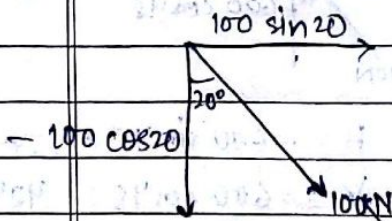 100 sin 20
20°
- 100 cos20
100kN